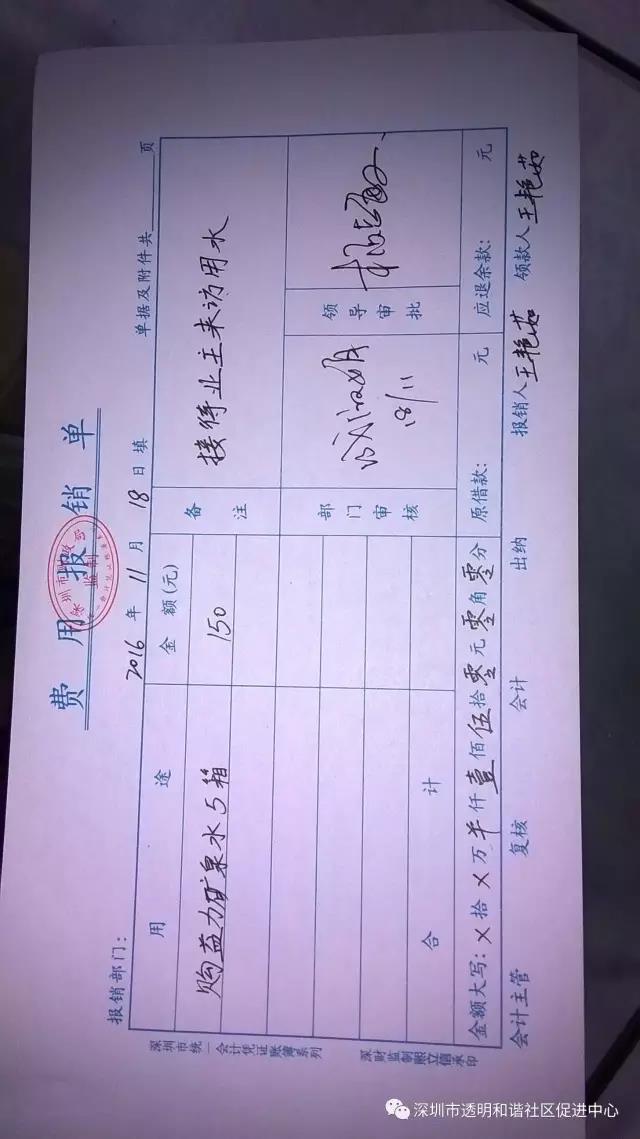 费用报销单
深圳市
监制
报销部门：
2016 年 11 月 18 日 填 单据及附件共 页
用途 金额(元) 备注
购益力矿泉水5箱 150 接待业主来访用水
部门审核 领导审批
18/11
合计
金额大写：X 拾 X 万 仟 壹 佰 伍 拾 零 元 零 角 零 分 原借款： 元 应退余款： 元
会计主管 复核 会计 出纳 报销人 王艳茹 领款人 王艳茹
深圳市统一会计凭证账簿系列
深财监制熙立信承印
深圳市透明和谐社区促进中心